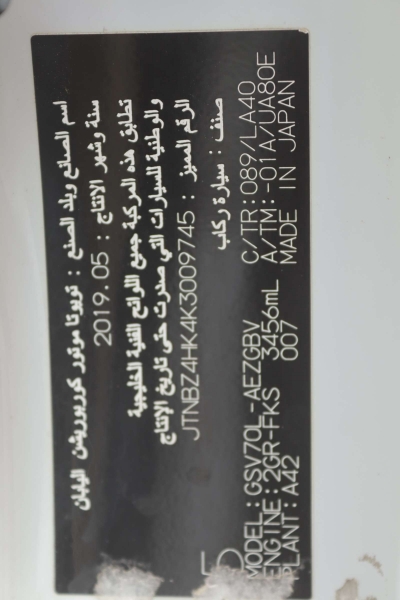 اسم الصانع وبلد الصنع : تويوتا موتور كوربوريشن اليابان
سنة وشهر الانتاج : 2019.05
تطابق هذه المركبة جميع اللوائح الفنية الخليجية
والوطنية للسيارات التي صدرت حتى تاريخ الإنتاج
الرقم المميز : JTNBZ4HK4K3009745
صنف : سيارة ركاب
MODEL:GSV70L-AEZGBV C/TR:089/LA40
ENGINE:2GR-FKS 3456mL A/TM:-01A/UA80E
PLANT:A42 007 MADE IN JAPAN
5